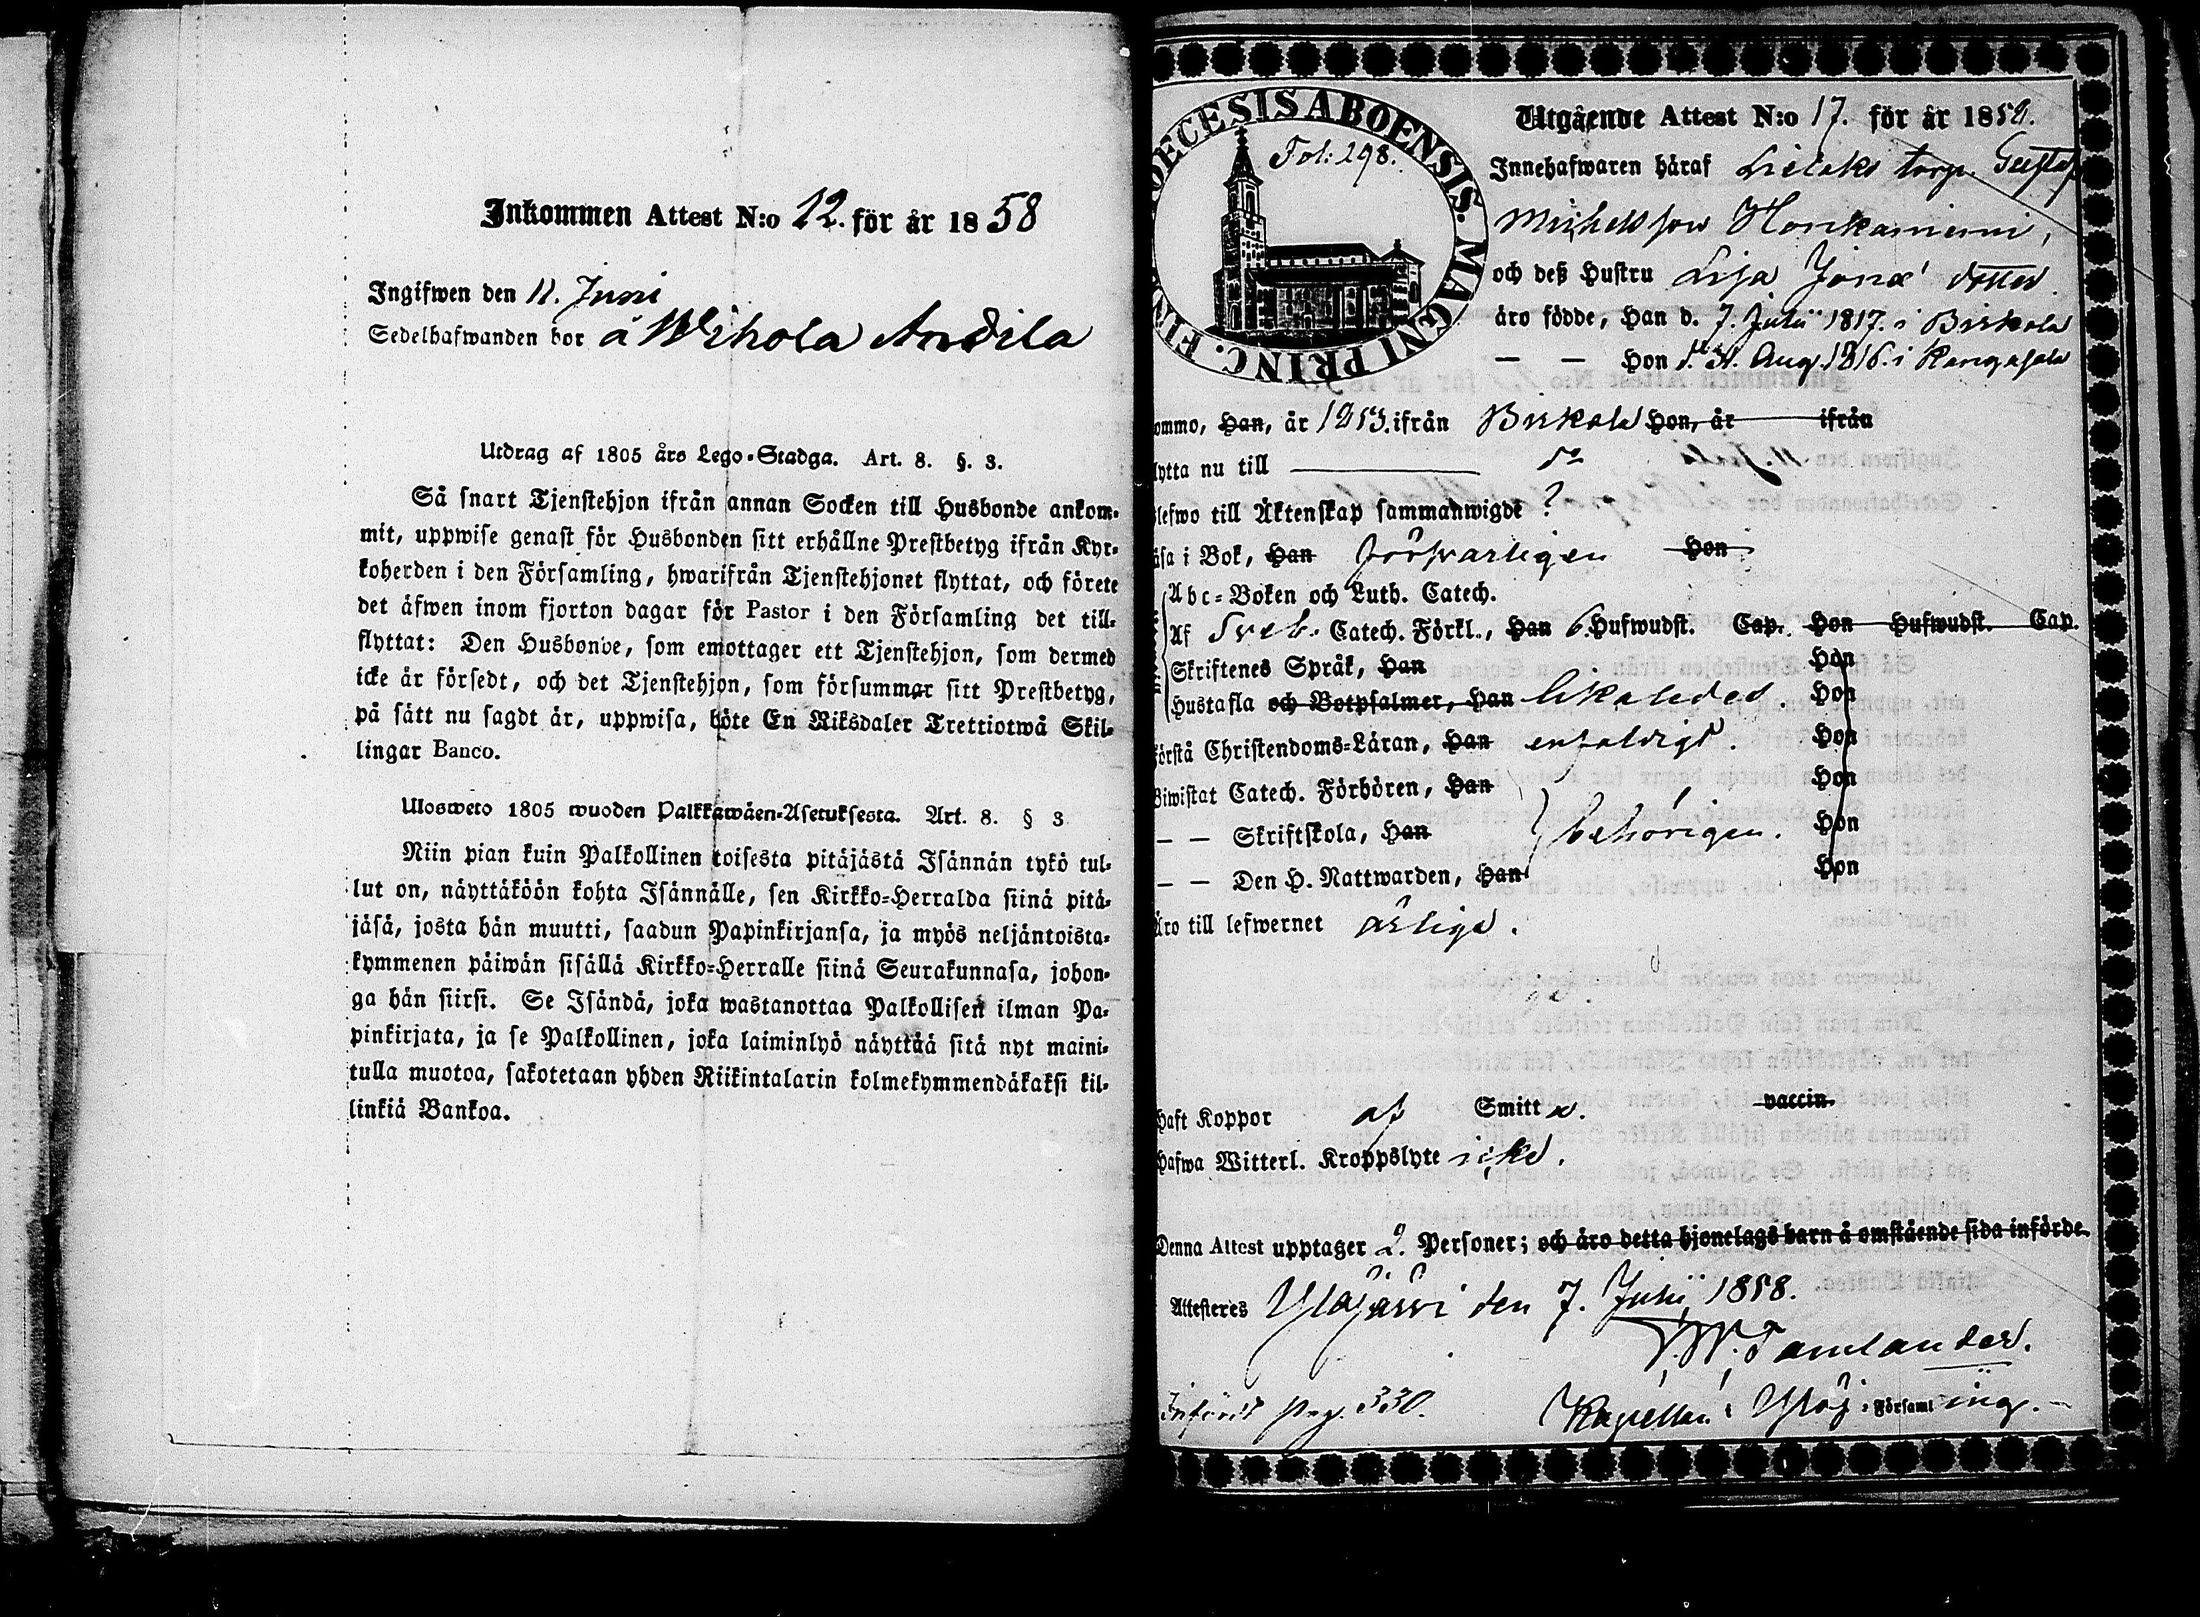 Inkommen Attest N:o 12. för år 1858
Ingifwen den 11. Juni
Sedelhafwanden bor å Wihola Andila
Utdrag af 1805 års Lego-Stadga. Art. 8. §. 3.
Så snart Tjenstehjon ifrån annan Socken till Husbonde ankom-
mit, uppwise genast för Husbonden sitt erhållne Prestbetyg ifrån Kyr-
koherden i den Församling, hwarifrån Tjenstehjonet flyttat, och förete
det äfwen inom fjorton dagar för Pastor i den Församling det till-
flyttat: Den Husbonde, som emottager ett Tjenstehjon, som dermed
icke är försedt, och det Tjenstehjon, som försummar sitt Prestbetyg,
på sätt nu sagdt är, uppwisa, böte En Riksdaler Trettiotwå Skil-
lingar Banco.
Ulosweto 1805 wuoden Palkkawäen-Asetuksesta. Art. 8. § 3
Niin pian kuin Palkollinen toisesta pitäjästä Isännän tykö tul-
lut on, näyttäköön kohta Isännälle, sen Kirkko-Herralda siinä pitä-
jäsä, josta hän muutti, saadun Papinkirjansa, ja myös neljäntoista-
kymmenen päiwän sisällä Kirkko-Herralle siinä Seurakunnasa, johon-
ga hän siirsi. Se Isändä, joka wastanottaa Palkollisen ilman Pa-
pinkirjata, ja se Palkollinen, joka laiminlyö näyttää sitä nyt maini-
tulla muotoa, sakotetaan yhden Riikintalarin kolmekymmendäkaksi kil-
linkiä Bankoa.
DIOECESIS ABOENSIS. MAGNI PRINC. FIN
Fol: 298.
Utgående Attest N:o 17. för år 1858.
Innehafwaren häraf torp. Gustaf
Michelsson Honkaniemi,
och deß Hustru Lisa Jona dotter
äro födde, Han d. 7. Julii 1817. i Birkala
— — Hon d. 31. Aug. 1816. i Kangasala
ommo, Han, år 1853. ifrån Birkala Hon, år ifrån
lytta nu till do
lefwo till Äktenskap sammanwigde ?
äsa i Bok, Han förswarligen Hon
Abc-Boken och Luth. Catech.
Af Sveb. Catech. Förkl., Han 6. Hufwudst. Cap. Hon Hufwudst. Cap.
Skriftenes Språk, Han Hon
Hustafla och Botpsalmer, Han likaledes Hon
örstå Christendoms-Läran, Han enfaldigt. Hon
Biwistat Catech. Förhören, Han Hon
— — Skriftskola, Han behörigen. Hon
— — Den H. Nattwarden, Han Hon
Äro till lefwernet ärliga.
Haft Koppor af Smitta. vaccin.
Hafwa Witterl. Kroppslyte icke.
Denna Attest upptager 2. Personer; och äro detta hjonelags barn å omstående sida införde.
Attesteres Ylöjärwi den 7. Julii 1858.
Tamlander.
Infördt pag. 330. Kapellan i Ylöj. Församling.